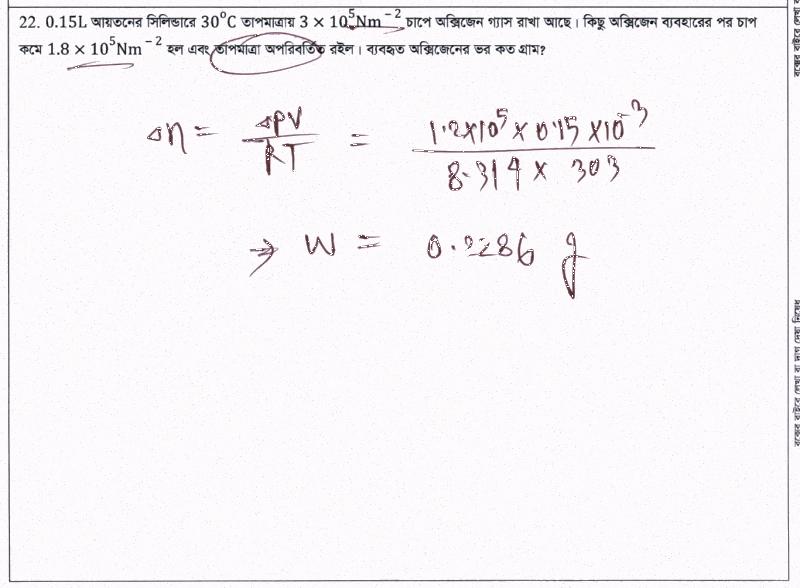 22. 0.15L আয়তনের সিলিন্ডারে 30⁰C তাপমাত্রায় 3 × 10⁵Nm⁻² চাপে অক্সিজেন গ্যাস রাখা আছে। কিছু অক্সিজেন ব্যবহারের পর চাপ
কমে 1.8 × 10⁵Nm⁻² হল এবং তাপমাত্রা অপরিবর্তিত রইল। ব্যবহৃত অক্সিজেনের ভর কত গ্রাম?
Δn = ΔPV / RT = 1.2×10⁵ × 0.15 × 10⁻³ / 8.314 × 303
⇒ W = 0.2286 g